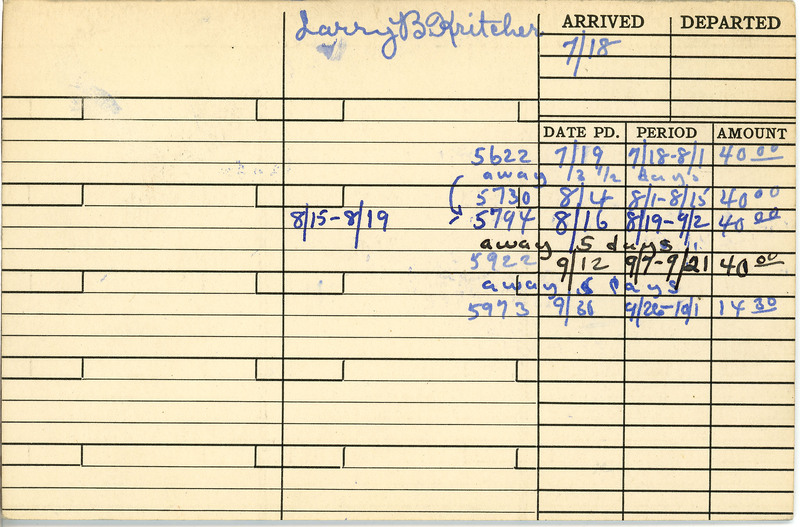 Larry B Kritcher
ARRIVED DEPARTED
7/18
DATE PD. PERIOD AMOUNT
5622 7/19 7/18-8/1 40 00
away 1/2 days
5730 8/4 8/1-8/15 40 00
8/15-8/19 5794 8/16 8/19-9/2 40 00
away 5 days
5922 9/12 9/7-9/21 40 00
away 5 days
5973 9/26-10/1 14 30